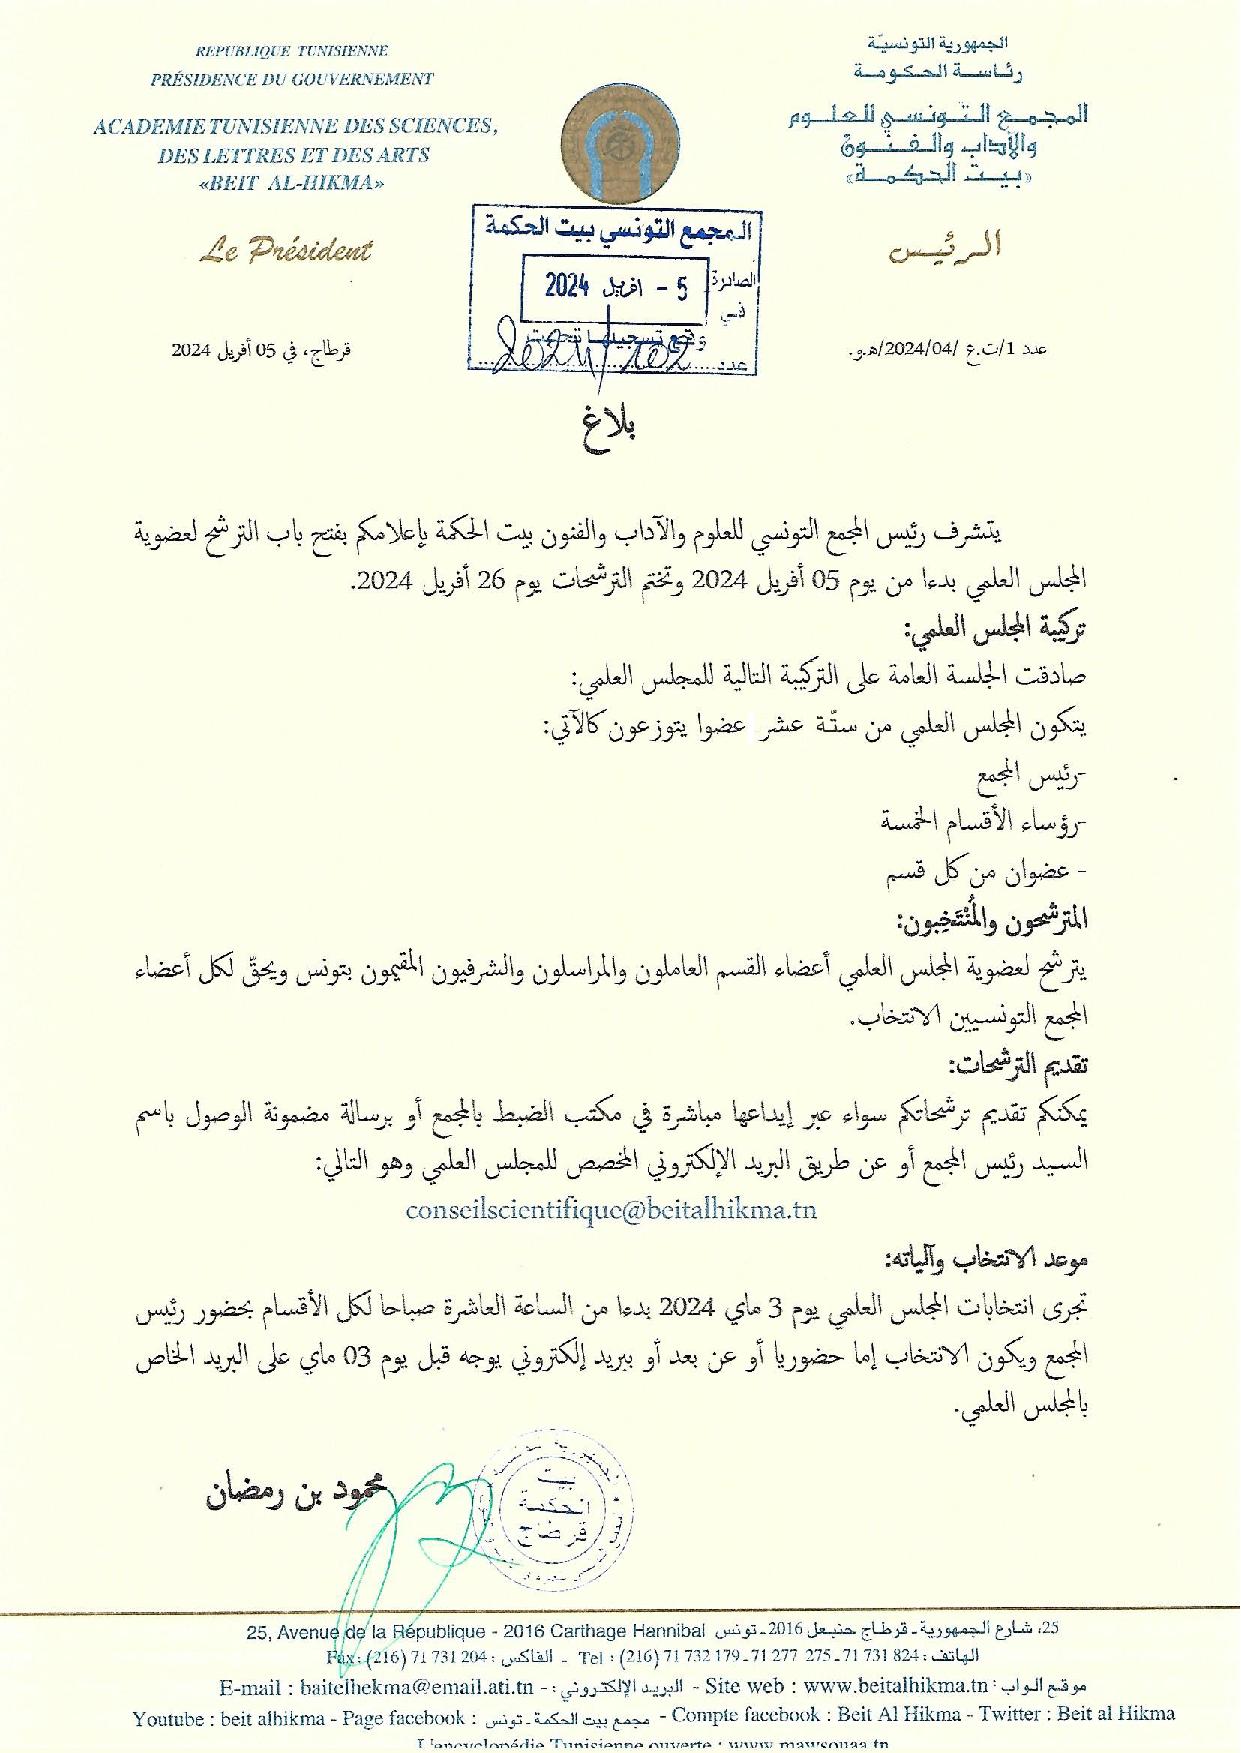 REPUBLIQUE TUNISIENNE
PRÉSIDENCE DU GOUVERNEMENT
ACADEMIE TUNISIENNE DES SCIENCES,
DES LETTRES ET DES ARTS
«BEIT AL-HIKMA»
Le Président
الجمهورية التونسيّة
رئاسة الحكومة
المجمع التونسي للعلوم
والآداب والفنون
«بيت الحكمة»
الرئيس
المجمع التونسي بيت الحكمة
الصادرة في
5 - افريل 2024
وقع تسجيلها تحت
عدد 2024/102
قرطاج، في 05 أفريل 2024
عدد 1/ت.ع /2024/04/ه.و.
بلاغ
يتشرف رئيس المجمع التونسي للعلوم والآداب والفنون بيت الحكمة بإعلامكم بفتح باب الترشح لعضوية
المجلس العلمي بدءا من يوم 05 أفريل 2024 وتختم الترشحات يوم 26 أفريل 2024.
تركيبة المجلس العلمي:
صادقت الجلسة العامة على التركيبة التالية للمجلس العلمي:
يتكون المجلس العلمي من ستّة عشر عضوا يتوزعون كالآتي:
-رئيس المجمع
-رؤساء الأقسام الخمسة
- عضوان من كل قسم
المترشحون والمُنْتَخِبون:
يترشح لعضوية المجلس العلمي أعضاء القسم العاملون والمراسلون والشرفيون المقيمون بتونس ويحقّ لكل أعضاء
المجمع التونسيين الانتخاب.
تقديم الترشحات:
يمكنكم تقديم ترشحاتكم سواء عبر إيداعها مباشرة في مكتب الضبط بالمجمع أو برسالة مضمونة الوصول باسم
السيد رئيس المجمع أو عن طريق البريد الإلكتروني المخصص للمجلس العلمي وهو التالي:
conseilscientifique@beitalhikma.tn
موعد الانتخاب وآلياته:
تجرى انتخابات المجلس العلمي يوم 3 ماي 2024 بدءا من الساعة العاشرة صباحا لكل الأقسام بحضور رئيس
المجمع ويكون الانتخاب إما حضوريا أو عن بعد أو ببريد إلكتروني يوجه قبل يوم 03 ماي على البريد الخاص
بالمجلس العلمي.
محمود بن رمضان
بيت
الحكمة
قرطاج
25, Avenue de la République - 2016 Carthage Hannibal 25، شارع الجمهورية - قرطاج حنبعل 2016 - تونس
Fax : (216) 71 731 204 : الفاكس - Tel : (216) 71 732 179 - 71 277 275 - 71 731 824 : الهاتف
E-mail : baitelhekma@email.ati.tn - : البريد الإلكتروني - Site web : www.beitalhikma.tn : موقع الواب
Youtube : beit alhikma - Page facebook : مجمع بيت الحكمة - تونس - Compte facebook : Beit Al Hikma - Twitter : Beit al Hikma
L'encyclopédie Tunisienne ouverte : www.mawsouaa.tn